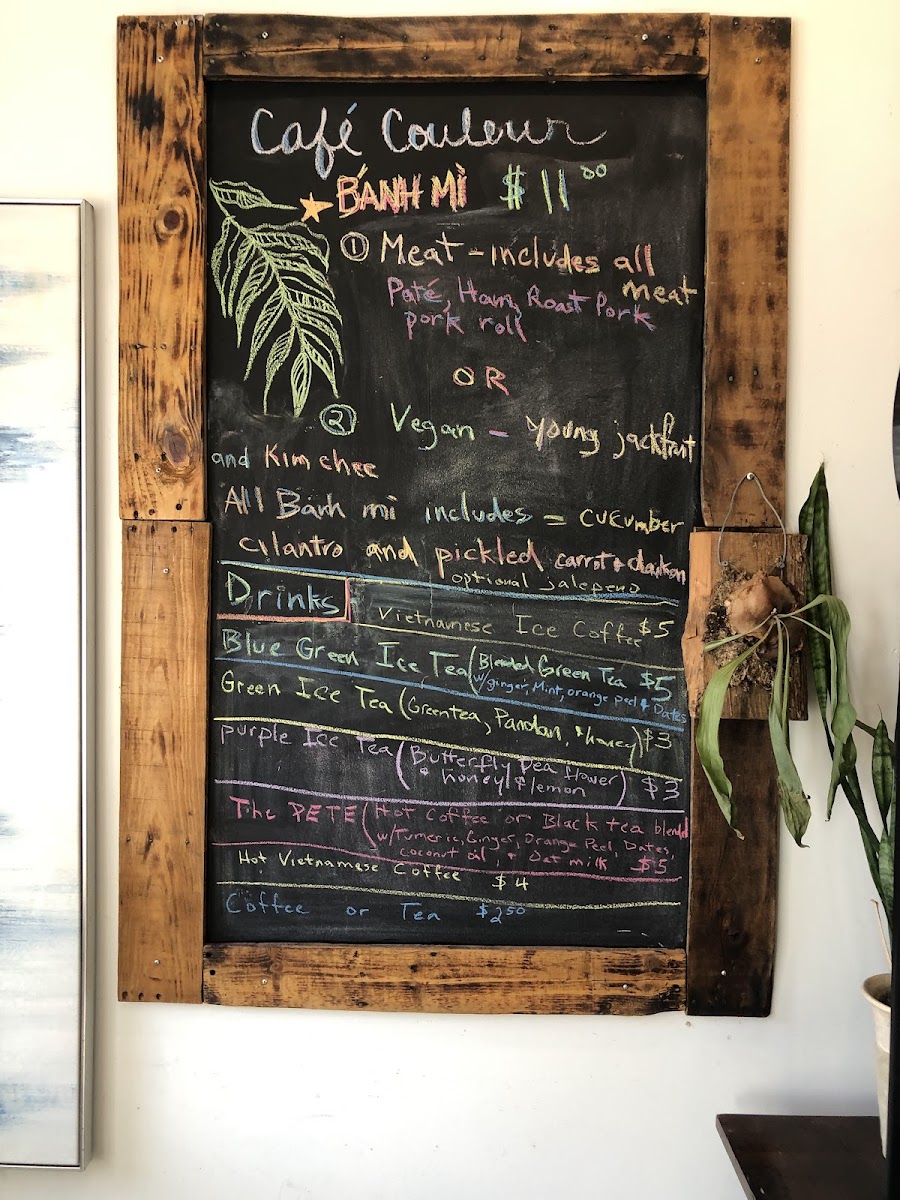 Café Couleur
BÁNH MÌ $11.00
① Meat - includes all
meat
Paté, Ham, Roast Pork
pork roll
OR
② Vegan - Young jackfruit
and Kim chee
All Bánh mì includes = cucumber
cilantro and pickled carrot + daikon
optional jalepeno
Drinks
Vietnamese Ice Coffee $5
Blue Green Ice Tea (Blended Green Tea $5
w/ginger, Mint, orange peel + Dates
Green Ice Tea (Greentea, Pandan, + honey) $3
purple Ice Tea (Butterfly Pea flower
+ honey/+ lemon) $3
The PETE (Hot coffee or Black tea blended
w/Tumeric, Ginger, Orange Peel, Dates,
coconut oil, + Oat milk $5
Hot Vietnamese Coffee $4
Coffee or Tea $2.50